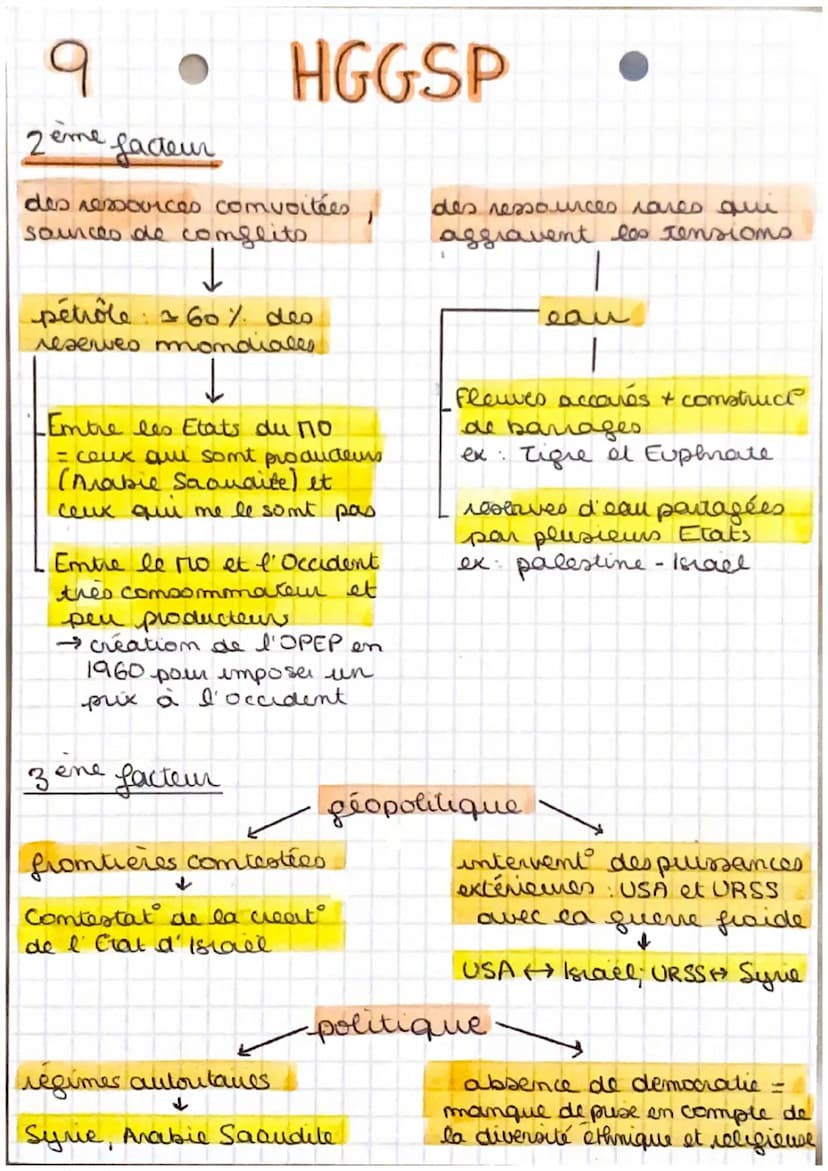 9
HGGSP
2ème facteur
des ressources convoitées,
sources de conflits
pétrôle : ≈ 60% des
réserves mondiales
Entre les Etats du MO
= ceux qui sont producteurs
(Arabie Saoudite) et
ceux qui ne le sont pas
Entre le MO et l'Occident
très consommateur et
peu producteurs
→ création de l'OPEP en
1960 pour imposer un
prix à l'occident
des ressources rares qui
aggravent les tensions
eau
fleuves accarés + construct°
de barrages
ex : Tigre et Euphrate
réserves d'eau partagées
par plusieurs Etats
ex : palestine - Israël
3ème facteur
géopolitique
frontières contestées
Contestat° de la creat°
de l'Etat d'Israël
intervent° des puissances
extérieures : USA et URSS
avec la guerre froide
USA ↔ Israël; URSS ↔ Syrie
politique
régimes autoritaires
Syrie, Arabie Saoudite
absence de démocratie =
manque de prise en compte de
la diversité éthnique et religieuse